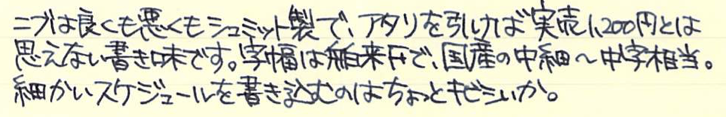 ニブは良くも悪くもシュミット製で、アタリを引ければ実売1,200円とは
思えない書き味です。字幅は舶来Fで、国産の中細〜中字相当。
細かいスケジュールを書き込むのはちょっとキビシいか。